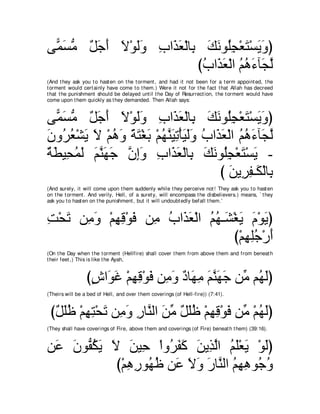 (وَيَسْتَعْجِلُونَكَ بِالْعَذَابِ وَلَوْلاَ أَجَلٌ مُّسَمًّى
لَّجَآءَهُمُ الْعَذَابُ)
(And they ask you to hasten on the torment, and had it not been for a term appointed, the torment would certainly have come to them.) Were it not for the fact that Allah has decreed that the punishment should be delayed until the Day of Resurrection, the torment would have come upon them quickly as they demanded. Then Allah says:
(وَيَسْتَعْجِلُونَكَ بِالْعَذَابِ وَلَوْلاَ أَجَلٌ مُّسَمًّى
لَّجَآءَهُمُ الْعَذَابُ وَلَيَأْتِيَنَّهُمْ بَغْتَةً وَهُمْ لاَ يَشْعُرُونَ
- يَسْتَعْجِلُونَكَ بِالْعَذَابِ وَإِنَّ جَهَنَّمَ لَمُحِيطَةٌ
بِالْكَـفِرِينَ )
(And surely, it will come upon them suddenly while they perceive not! They ask you to hasten on the torment. And verily, Hell, of a surety, will encompass the disbelievers.) means, `they ask you to hasten on the punishment, but it will undoubtedly befall them.'
(يَوْمَ يَغْشَـهُمُ الْعَذَابُ مِن فَوْقِهِمْ وَمِن تَحْتِ
أَرْجُلِهِمْ)
(On the Day when the torment (Hellfire) shall cover them from above them and from beneath their feet,) This is like the Ayah,
(لَهُمْ مِّن جَهَنَّمَ مِهَادٌ وَمِن فَوْقِهِمْ غَوَاشٍ)
(Theirs will be a bed of Hell, and over them coverings (of Hell-fire)) (7:41).
(لَهُمْ مِّن فَوْقِهِمْ ظُلَلٌ مِّنَ النَّارِ وَمِن تَحْتِهِمْ ظُلَلٌ)
(They shall have coverings of Fire, above them and coverings (of Fire) beneath them) (39:16).
(لَوْ يَعْلَمُ الَّذِينَ كَفَرُواْ حِينَ لاَ يَكُفُّونَ عَن
وُجُوهِهِمُ النَّارَ وَلاَ عَن ظُهُورِهِمْ)